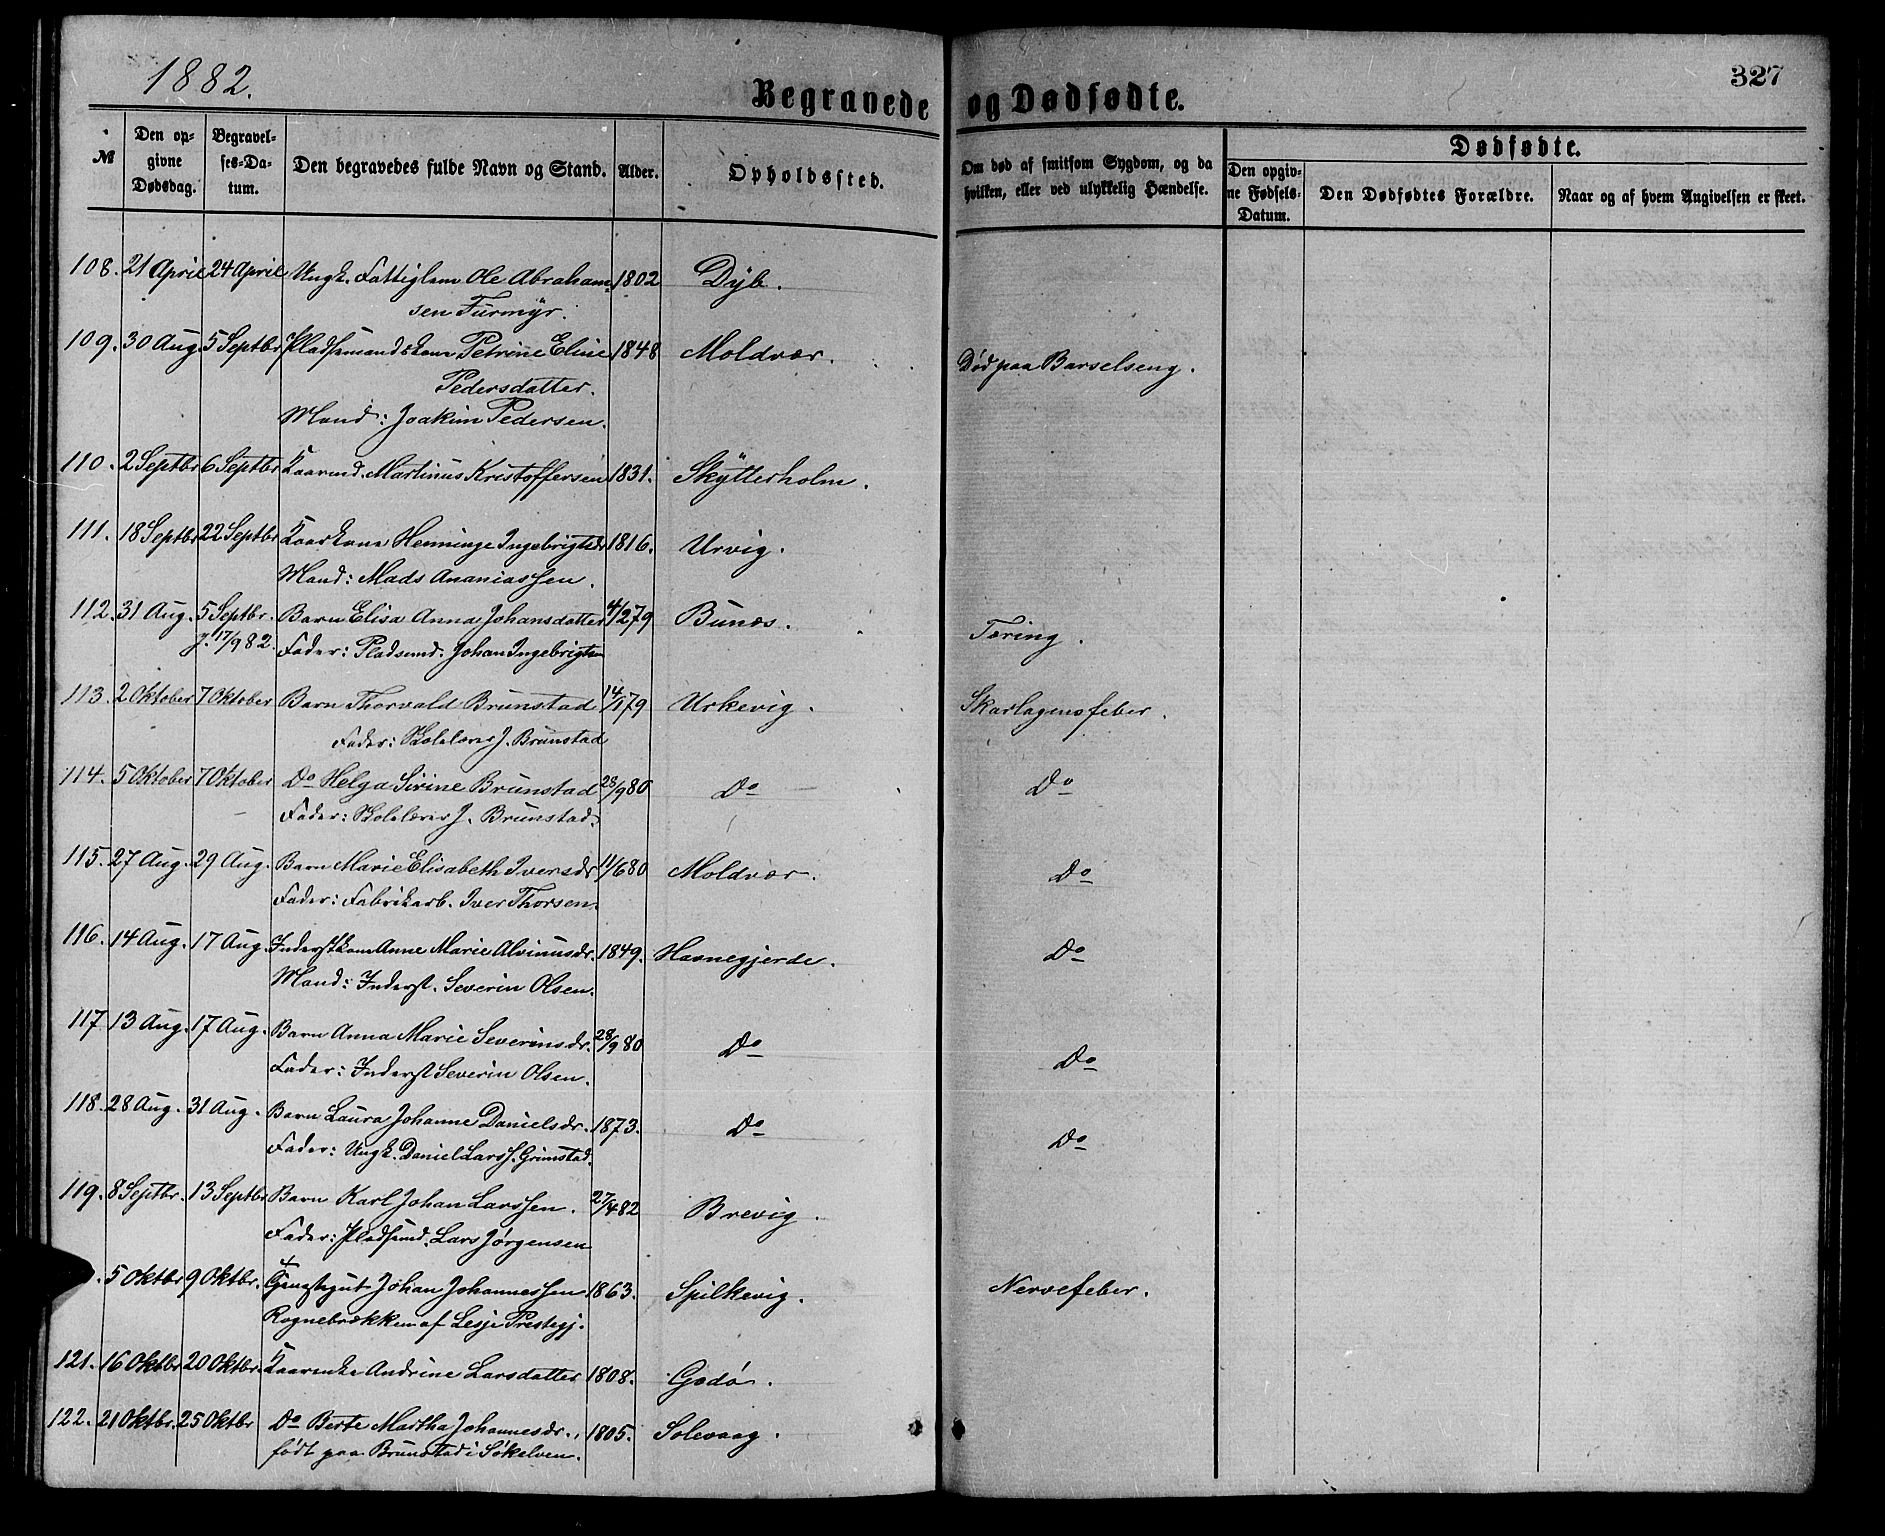 1882.
Begravede og Dødfødte.
327
№
Den opgivne Dødsdag.
Begravelses-Datum.
Den begravedes fulde Navn og Stand.
Alder.
Opholdssted.
Om død af smitsom Sygdom, og da hvilken, eller ved ulykkelig Hændelse.
Dødfødte.
Den opgivne Fødsels-Datum.
Den Dødfødtes Forældre.
Naar og af hvem Angivelsen er skeet.
108. 21 April 24 April Ungk. Fattiglem Ole Abraham- 1802 Dyb.
sen Furmyr.
109. 30 Aug. 5 Septbr Pladsmandskone Petrine Eline 1848 Moldvær. Død paa Barselseng.
Pedersdatter.
Mand: Joakim Pedersen.
110. 2 Septbr 6 Septbr Kaarmd. Martinus Kristoffersen 1831. Skytterholm.
111. 18 Septbr 22 Septbr Kaarkone Henninge Ingebrigtsdr 1816. Urvig.
Mand: Mads Ananiassen.
112. 31 Aug. 5 Septbr. Barn Elisa Anna Johansdatter 4/2 79 Bunæs. Tæring.
j. 17/9 82. Fader: Pladsmd. Johan Ingebrigtsen
113. 2 Oktober 7 Oktober Barn Thorvald Brunstad 14/1 79 Urkevig. Skarlagensfeber.
Fader: Skolelærer J. Brunstad
114. 5 Oktober 7 Oktober Do Helga Sirine Brunstad 28/9 80 Do Do
Fader: Skolelærer J. Brunstad.
115. 27 Aug. 29 Aug. Barn Marie Elisabeth Iversdr 11/6 80 Moldvær. Do
Fader: Fabrikarb. Iver Thorsen.
116. 14 Aug. 17 Aug. Inderstkone Anne Marie Alvinusdr. 1849. Havnegjerde. Do
Mand: Inderst. Severin Olsen.
117 13 Aug. 17 Aug. Barn Anna Marie Severinsdr. 28/9 80 Do Do
Fader: Inderst Severin Olsen.
118. 28 Aug. 31 Aug. Barn Laura Johanne Danielsdr. 1873. Do Do
Fader: Ungk. Daniel Larss. Grimstad.
119. 8 Septbr. 13 Septbr Barn Karl Johan Larssen. 27/4 82 Brevig.
Fader: Pladsmd. Lars Jørgensen
. 5 Oktbr 9 Oktbr. Tjenestegut Johan Johannessen 1863. Spilkevig. Nervefeber.
Rognebrækken af Lesje Prestegj.
121. 16 Oktbr 20 Oktbr. Kaarenke Andrine Larsdatter 1808. Godø.
122. 21 Oktbr. 25 Oktbr Do Berte Martha Johannesdr., 1805. Solevaag.
født paa Brunstad i Søkelven.